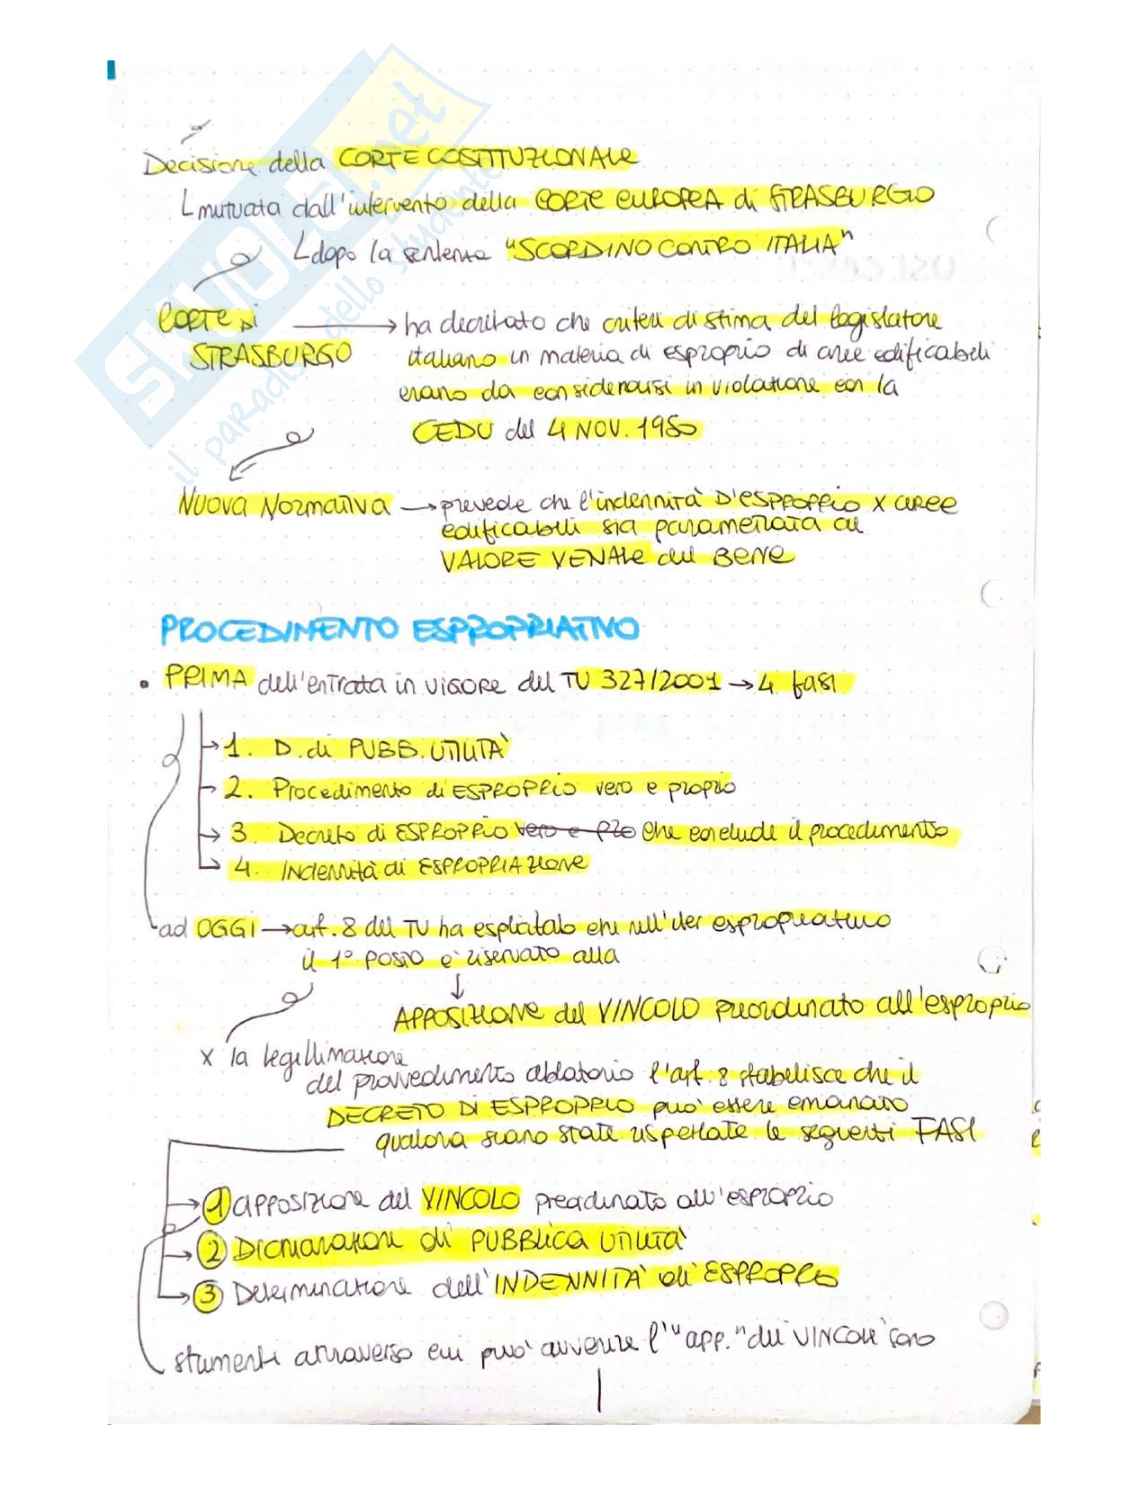 Decisione della CORTE COSTITUZIONALE
mutuata dall'intervento della CORTE EUROPEA di STRASBURGO
dopo la sentenza "SCORDINO CONTRO ITALIA"
CORTE DI STRASBURGO → ha decretato che criteri di stima del legislatore
italiano in materia di esproprio di aree edificabili
erano da considerarsi in violazione con la
CEDU del 4 NOV. 1950
NUOVA NORMATIVA → prevede che l'indennità D'ESPROPRIO x aree
edificabili sia parametrata al
VALORE VENALE del BENE
PROCEDIMENTO ESPROPRIATIVO
• PRIMA dell'entrata in vigore del TU 327/2001 → 4 fasi
→ 1. D. di PUBB. UTILITÀ
→ 2. Procedimento di ESPROPRIO vero e proprio
→ 3. Decreto di ESPROPRIO vero e pro che conclude il procedimento
→ 4. Indennità di ESPROPRIAZIONE
ad OGGI → art. 8 del TU ha esplicitato che nell'iter espropriativo
il 1° posto è riservato alla
↓
APPOSIZIONE del VINCOLO preordinato all'esproprio
x la legittimazione
del provvedimento ablatorio l'art. 8 stabilisce che il
DECRETO DI ESPROPRIO può essere emanato
qualora siano state rispettate le seguenti FASI
→ 1 apposizione del VINCOLO preordinato all'esproprio
→ 2 Dichiarazione di PUBBLICA UTILITÀ
→ 3 Determinazione dell'INDENNITÀ di ESPROPRIO
strumenti attraverso cui può avvenire l'"app." dei VINCOLI sono
SKUOLA.net
il paradiso dello studente